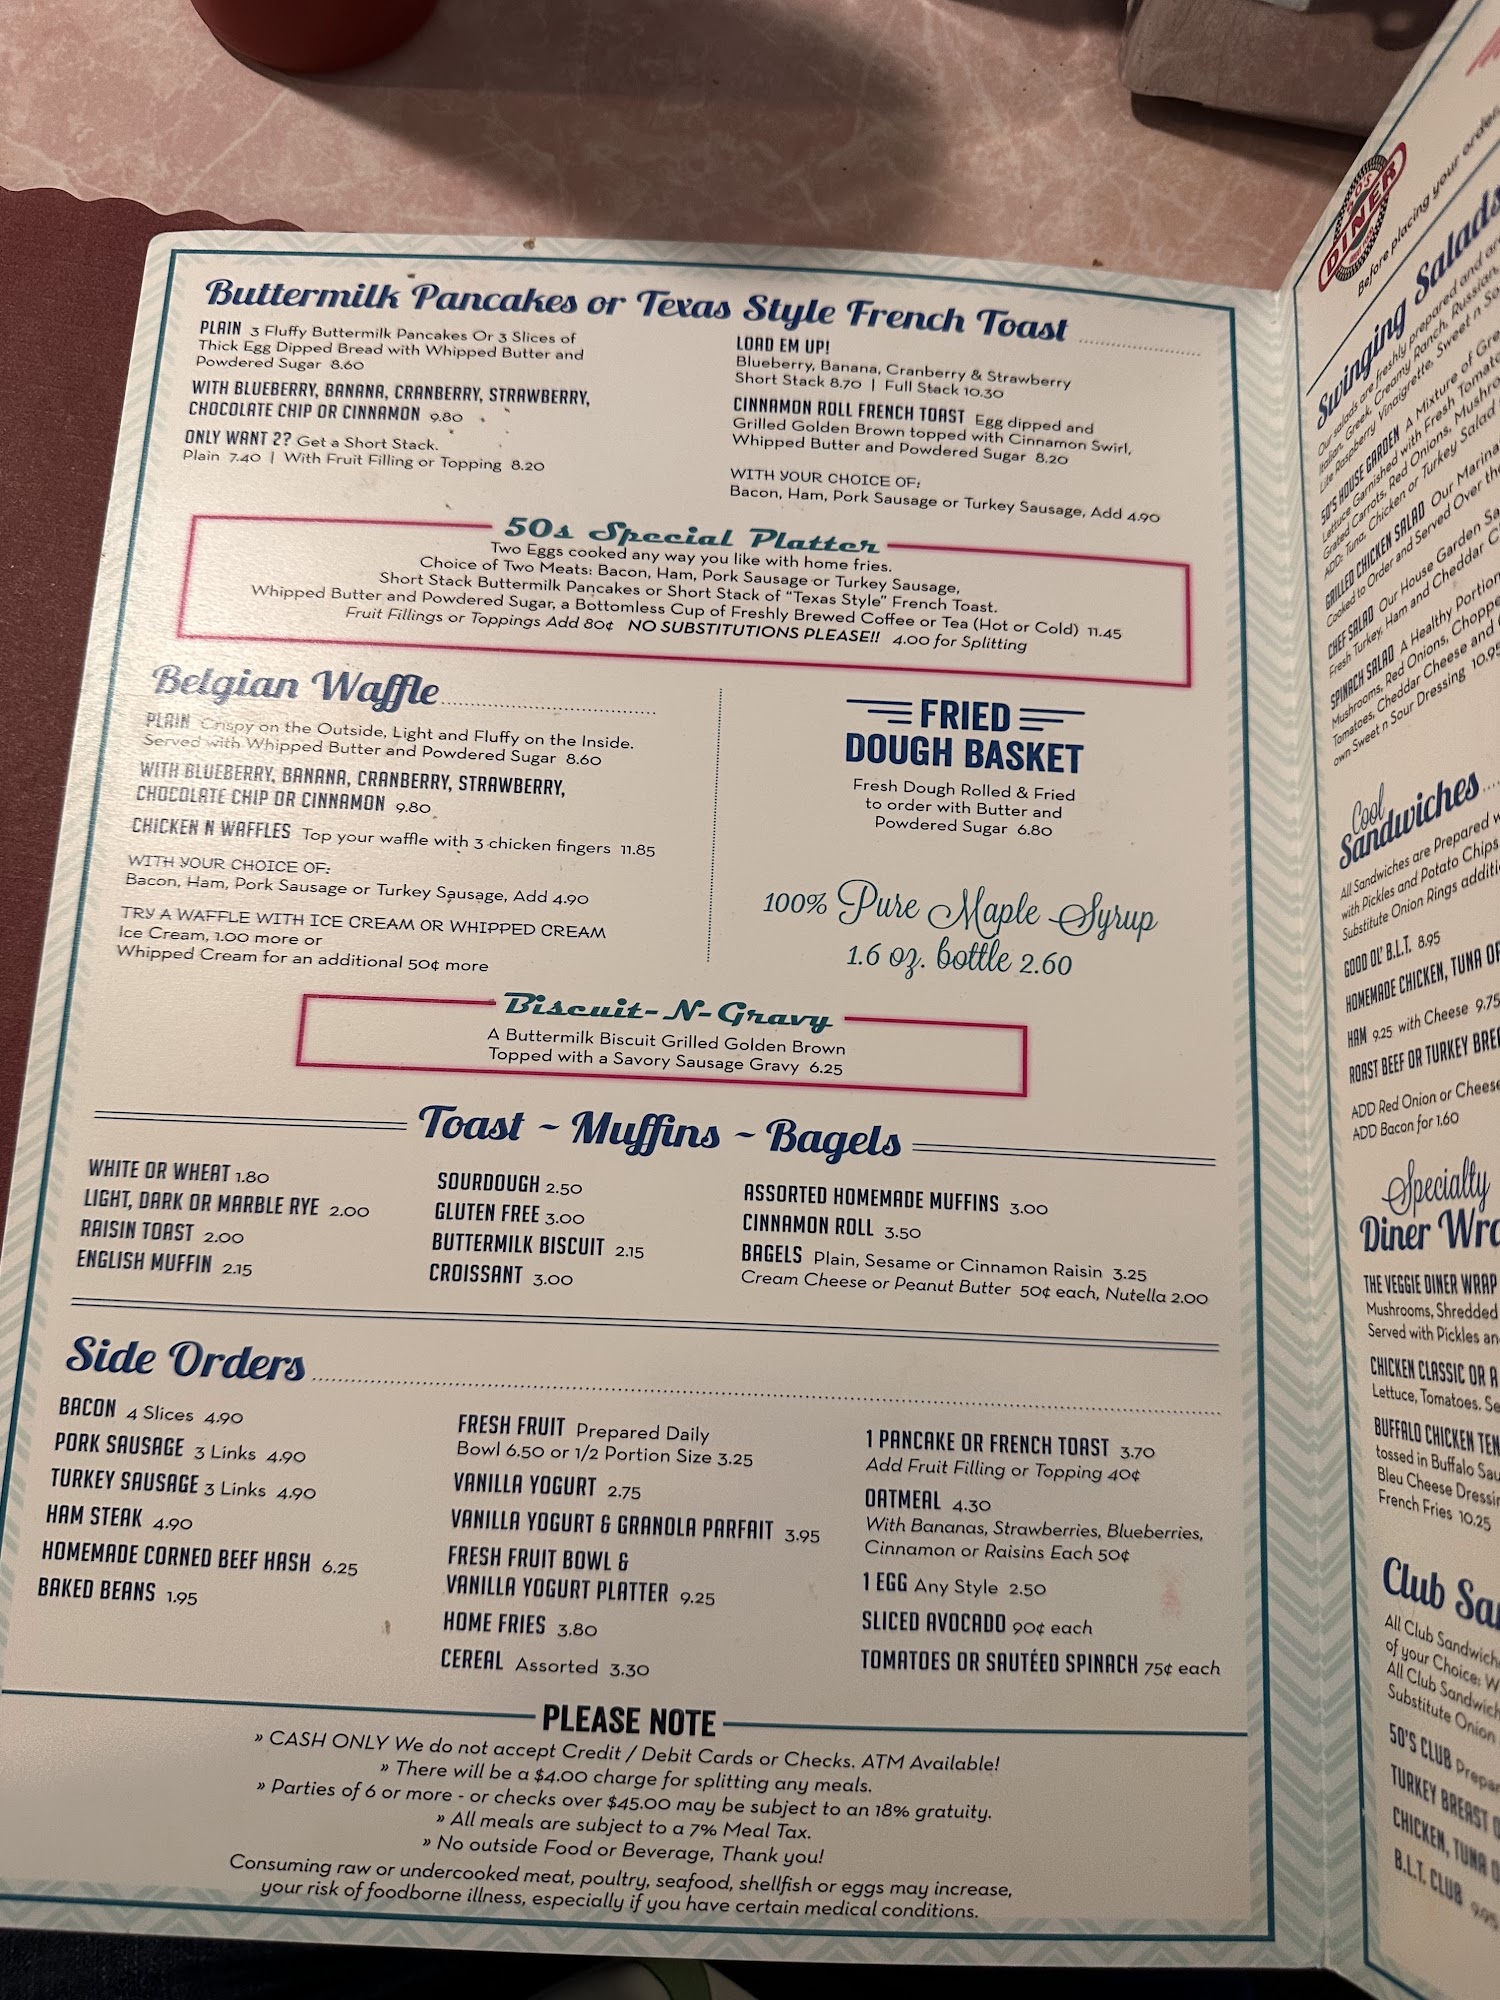 Buttermilk Pancakes or Texas Style French Toast
PLAIN 3 Fluffy Buttermilk Pancakes Or 3 Slices of
Thick Egg Dipped Bread with Whipped Butter and
Powdered Sugar 8.60
WITH BLUEBERRY, BANANA, CRANBERRY, STRAWBERRY,
CHOCOLATE CHIP OR CINNAMON 9.80
ONLY WANT 2? Get a Short Stack.
Plain 7.40 | With Fruit Filling or Topping 8.20
LOAD EM UP!
Blueberry, Banana, Cranberry & Strawberry
Short Stack 8.70 | Full Stack 10.30
CINNAMON ROLL FRENCH TOAST Egg dipped and
Grilled Golden Brown topped with Cinnamon Swirl,
Whipped Butter and Powdered Sugar 8.20
WITH YOUR CHOICE OF:
Bacon, Ham, Pork Sausage or Turkey Sausage, Add 4.90
50s Special Platter
Two Eggs cooked any way you like with home fries.
Choice of Two Meats: Bacon, Ham, Pork Sausage or Turkey Sausage,
Short Stack Buttermilk Pancakes or Short Stack of "Texas Style" French Toast.
Whipped Butter and Powdered Sugar, a Bottomless Cup of Freshly Brewed Coffee or Tea (Hot or Cold) 11.45
Fruit Fillings or Toppings Add 80¢ NO SUBSTITUTIONS PLEASE!! 4.00 for Splitting
Belgian Waffle
PLAIN Crispy on the Outside, Light and Fluffy on the Inside.
Served with Whipped Butter and Powdered Sugar 8.60
WITH BLUEBERRY, BANANA, CRANBERRY, STRAWBERRY,
CHOCOLATE CHIP OR CINNAMON 9.80
CHICKEN N WAFFLES Top your waffle with 3 chicken fingers 11.85
WITH YOUR CHOICE OF:
Bacon, Ham, Pork Sausage or Turkey Sausage, Add 4.90
TRY A WAFFLE WITH ICE CREAM OR WHIPPED CREAM
Ice Cream, 1.00 more or
Whipped Cream for an additional 50¢ more
FRIED
DOUGH BASKET
Fresh Dough Rolled & Fried
to order with Butter and
Powdered Sugar 6.80
100% Pure Maple Syrup
1.6 oz. bottle 2.60
Biscuit-N-Gravy
A Buttermilk Biscuit Grilled Golden Brown
Topped with a Savory Sausage Gravy 6.25
Toast ~ Muffins ~ Bagels
WHITE OR WHEAT 1.80
LIGHT, DARK OR MARBLE RYE 2.00
RAISIN TOAST 2.00
ENGLISH MUFFIN 2.15
SOURDOUGH 2.50
GLUTEN FREE 3.00
BUTTERMILK BISCUIT 2.15
CROISSANT 3.00
ASSORTED HOMEMADE MUFFINS 3.00
CINNAMON ROLL 3.50
BAGELS Plain, Sesame or Cinnamon Raisin 3.25
Cream Cheese or Peanut Butter 50¢ each, Nutella 2.00
Side Orders
BACON 4 Slices 4.90
PORK SAUSAGE 3 Links 4.90
TURKEY SAUSAGE 3 Links 4.90
HAM STEAK 4.90
HOMEMADE CORNED BEEF HASH 6.25
BAKED BEANS 1.95
FRESH FRUIT Prepared Daily
Bowl 6.50 or 1/2 Portion Size 3.25
VANILLA YOGURT 2.75
VANILLA YOGURT & GRANOLA PARFAIT 3.95
FRESH FRUIT BOWL &
VANILLA YOGURT PLATTER 9.25
HOME FRIES 3.80
CEREAL Assorted 3.30
1 PANCAKE OR FRENCH TOAST 3.70
Add Fruit Filling or Topping 40¢
OATMEAL 4.30
With Bananas, Strawberries, Blueberries,
Cinnamon or Raisins Each 50¢
1 EGG Any Style 2.50
SLICED AVOCADO 90¢ each
TOMATOES OR SAUTÉED SPINACH 75¢ each
PLEASE NOTE
» CASH ONLY We do not accept Credit / Debit Cards or Checks. ATM Available!
» There will be a $4.00 charge for splitting any meals.
» Parties of 6 or more - or checks over $45.00 may be subject to an 18% gratuity.
» All meals are subject to a 7% Meal Tax.
» No outside Food or Beverage, Thank you!
Consuming raw or undercooked meat, poultry, seafood, shellfish or eggs may increase,
your risk of foodborne illness, especially if you have certain medical conditions.
DINER
Before placing your order,
Swinging Salads
Our salads are freshly prepared and
Italian, Greek, Creamy Ranch, Russian,
Lite Raspberry Vinaigrette, Sweet n
50'S HOUSE GARDEN A Mixture of
Lettuce Garnished with Fresh
Grated Carrots, Red Onions,
ADD: Tuna, Chicken or Turkey Salad
GRILLED CHICKEN SALAD Our
Cooked to Order and Served Over
CHEF SALAD Our House Garden
Fresh Turkey, Ham and Cheddar
SPINACH SALAD A Healthy Portion
Mushrooms, Red Onions,
Tomatoes, Cheddar Cheese and
own Sweet n Sour Dressing 10.95
Cool
Sandwiches
All Sandwiches are Prepared
with Pickles and Potato Chips
Substitute Onion Rings
GOOD OL' B.L.T. 8.95
HOMEMADE CHICKEN, TUNA OR
HAM 9.25 with Cheese 9.75
ROAST BEEF OR TURKEY
ADD Red Onion or Cheese
ADD Bacon for 1.60
Specialty
Diner
THE VEGGIE DINER WRAP
Mushrooms, Shredded
Served with Pickles
CHICKEN CLASSIC OR
Lettuce, Tomatoes.
BUFFALO CHICKEN
tossed in Buffalo
Bleu Cheese
French Fries 10.25
Club
All Club
of your Choice:
All Club
Substitute Onion
50'S CLUB
TURKEY BREAST
CHICKEN, TUNA
B.L.T. CLUB 9.95